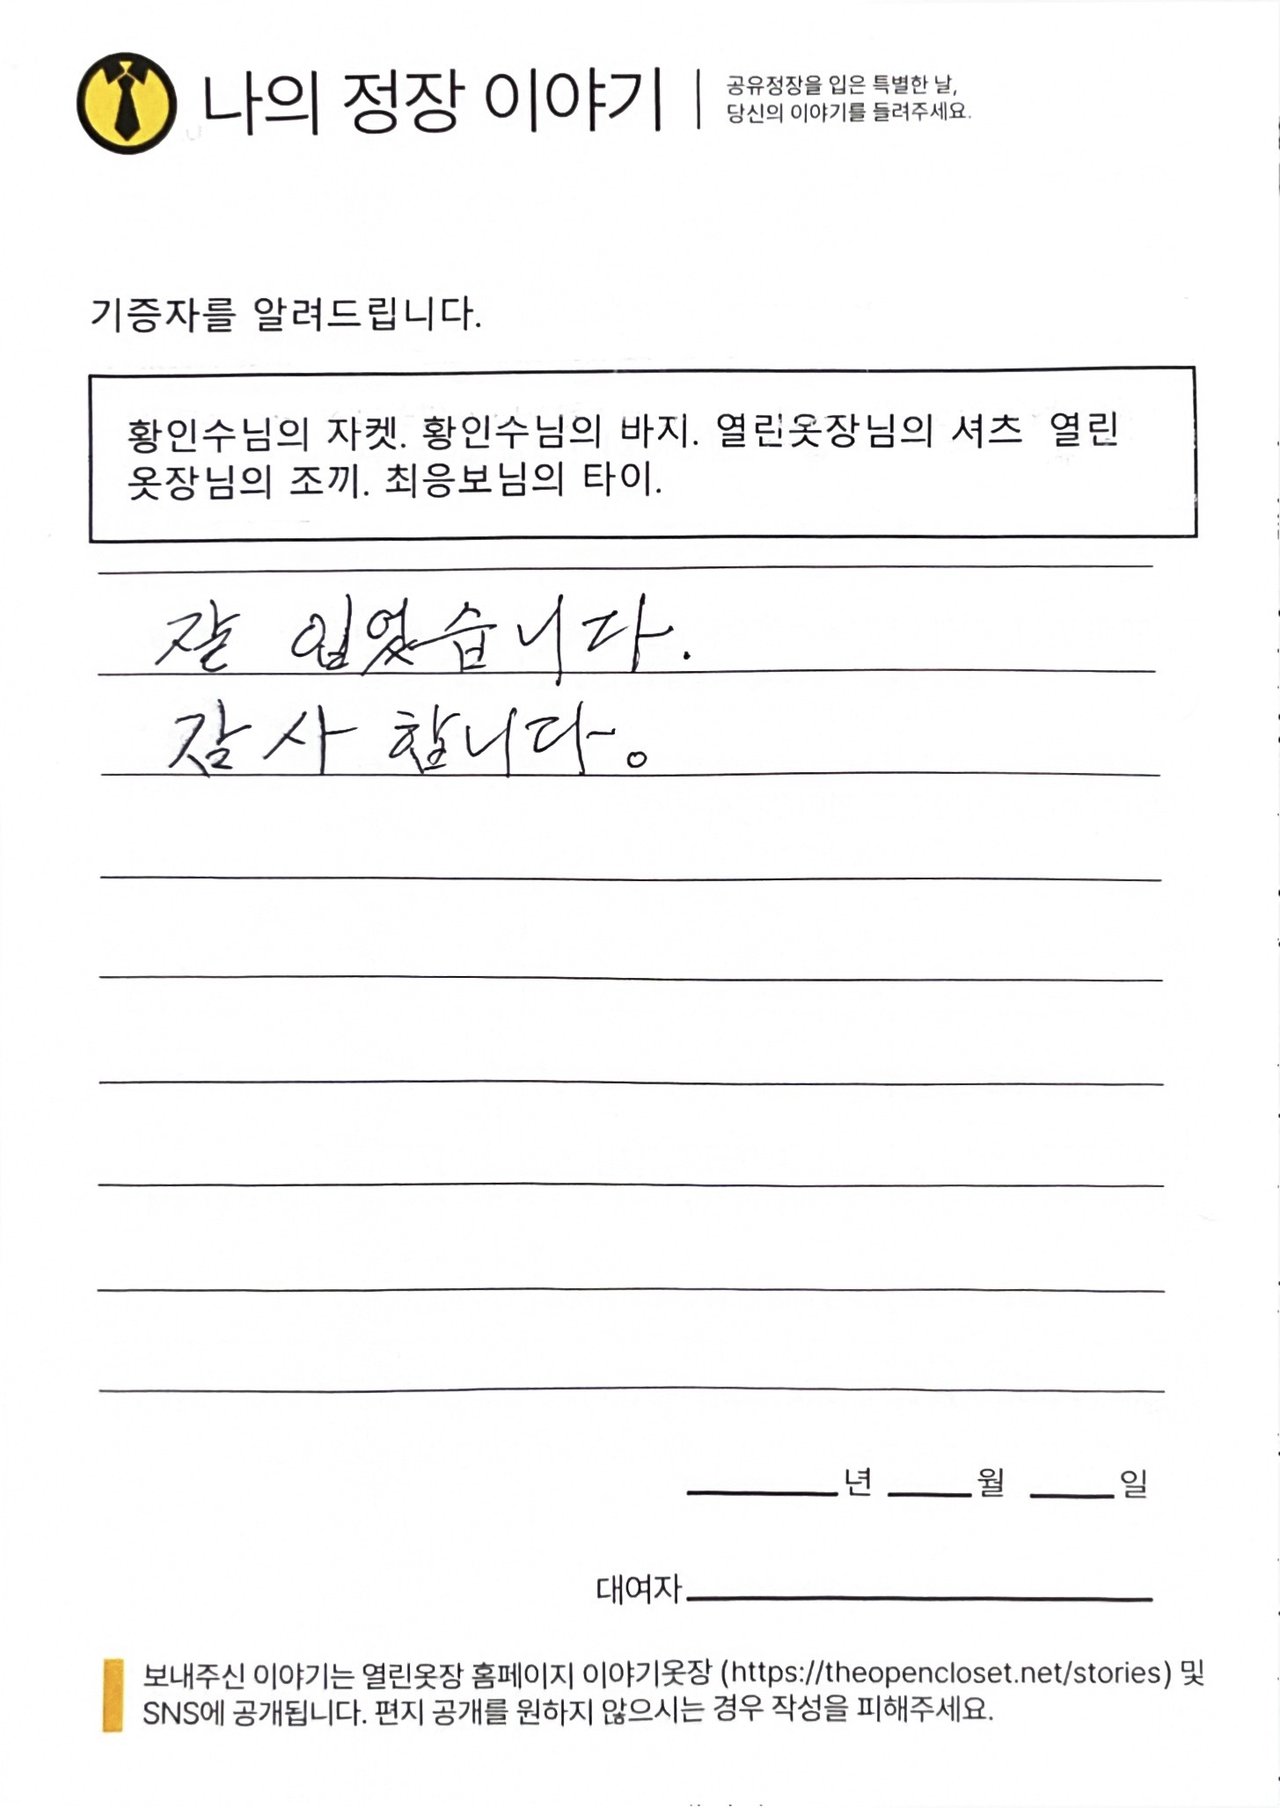 나의 정장 이야기
공유정장을 입은 특별한 날,
당신의 이야기를 들려주세요.
기증자를 알려드립니다.
황인수님의 자켓. 황인수님의 바지. 열린옷장님의 셔츠 열린
옷장님의 조끼. 최응보님의 타이.
잘 입었습니다.
감사 합니다.
년 월 일
대여자
보내주신 이야기는 열린옷장 홈페이지 이야기옷장 (https://theopencloset.net/stories) 및
SNS에 공개됩니다. 편지 공개를 원하지 않으시는 경우 작성을 피해주세요.